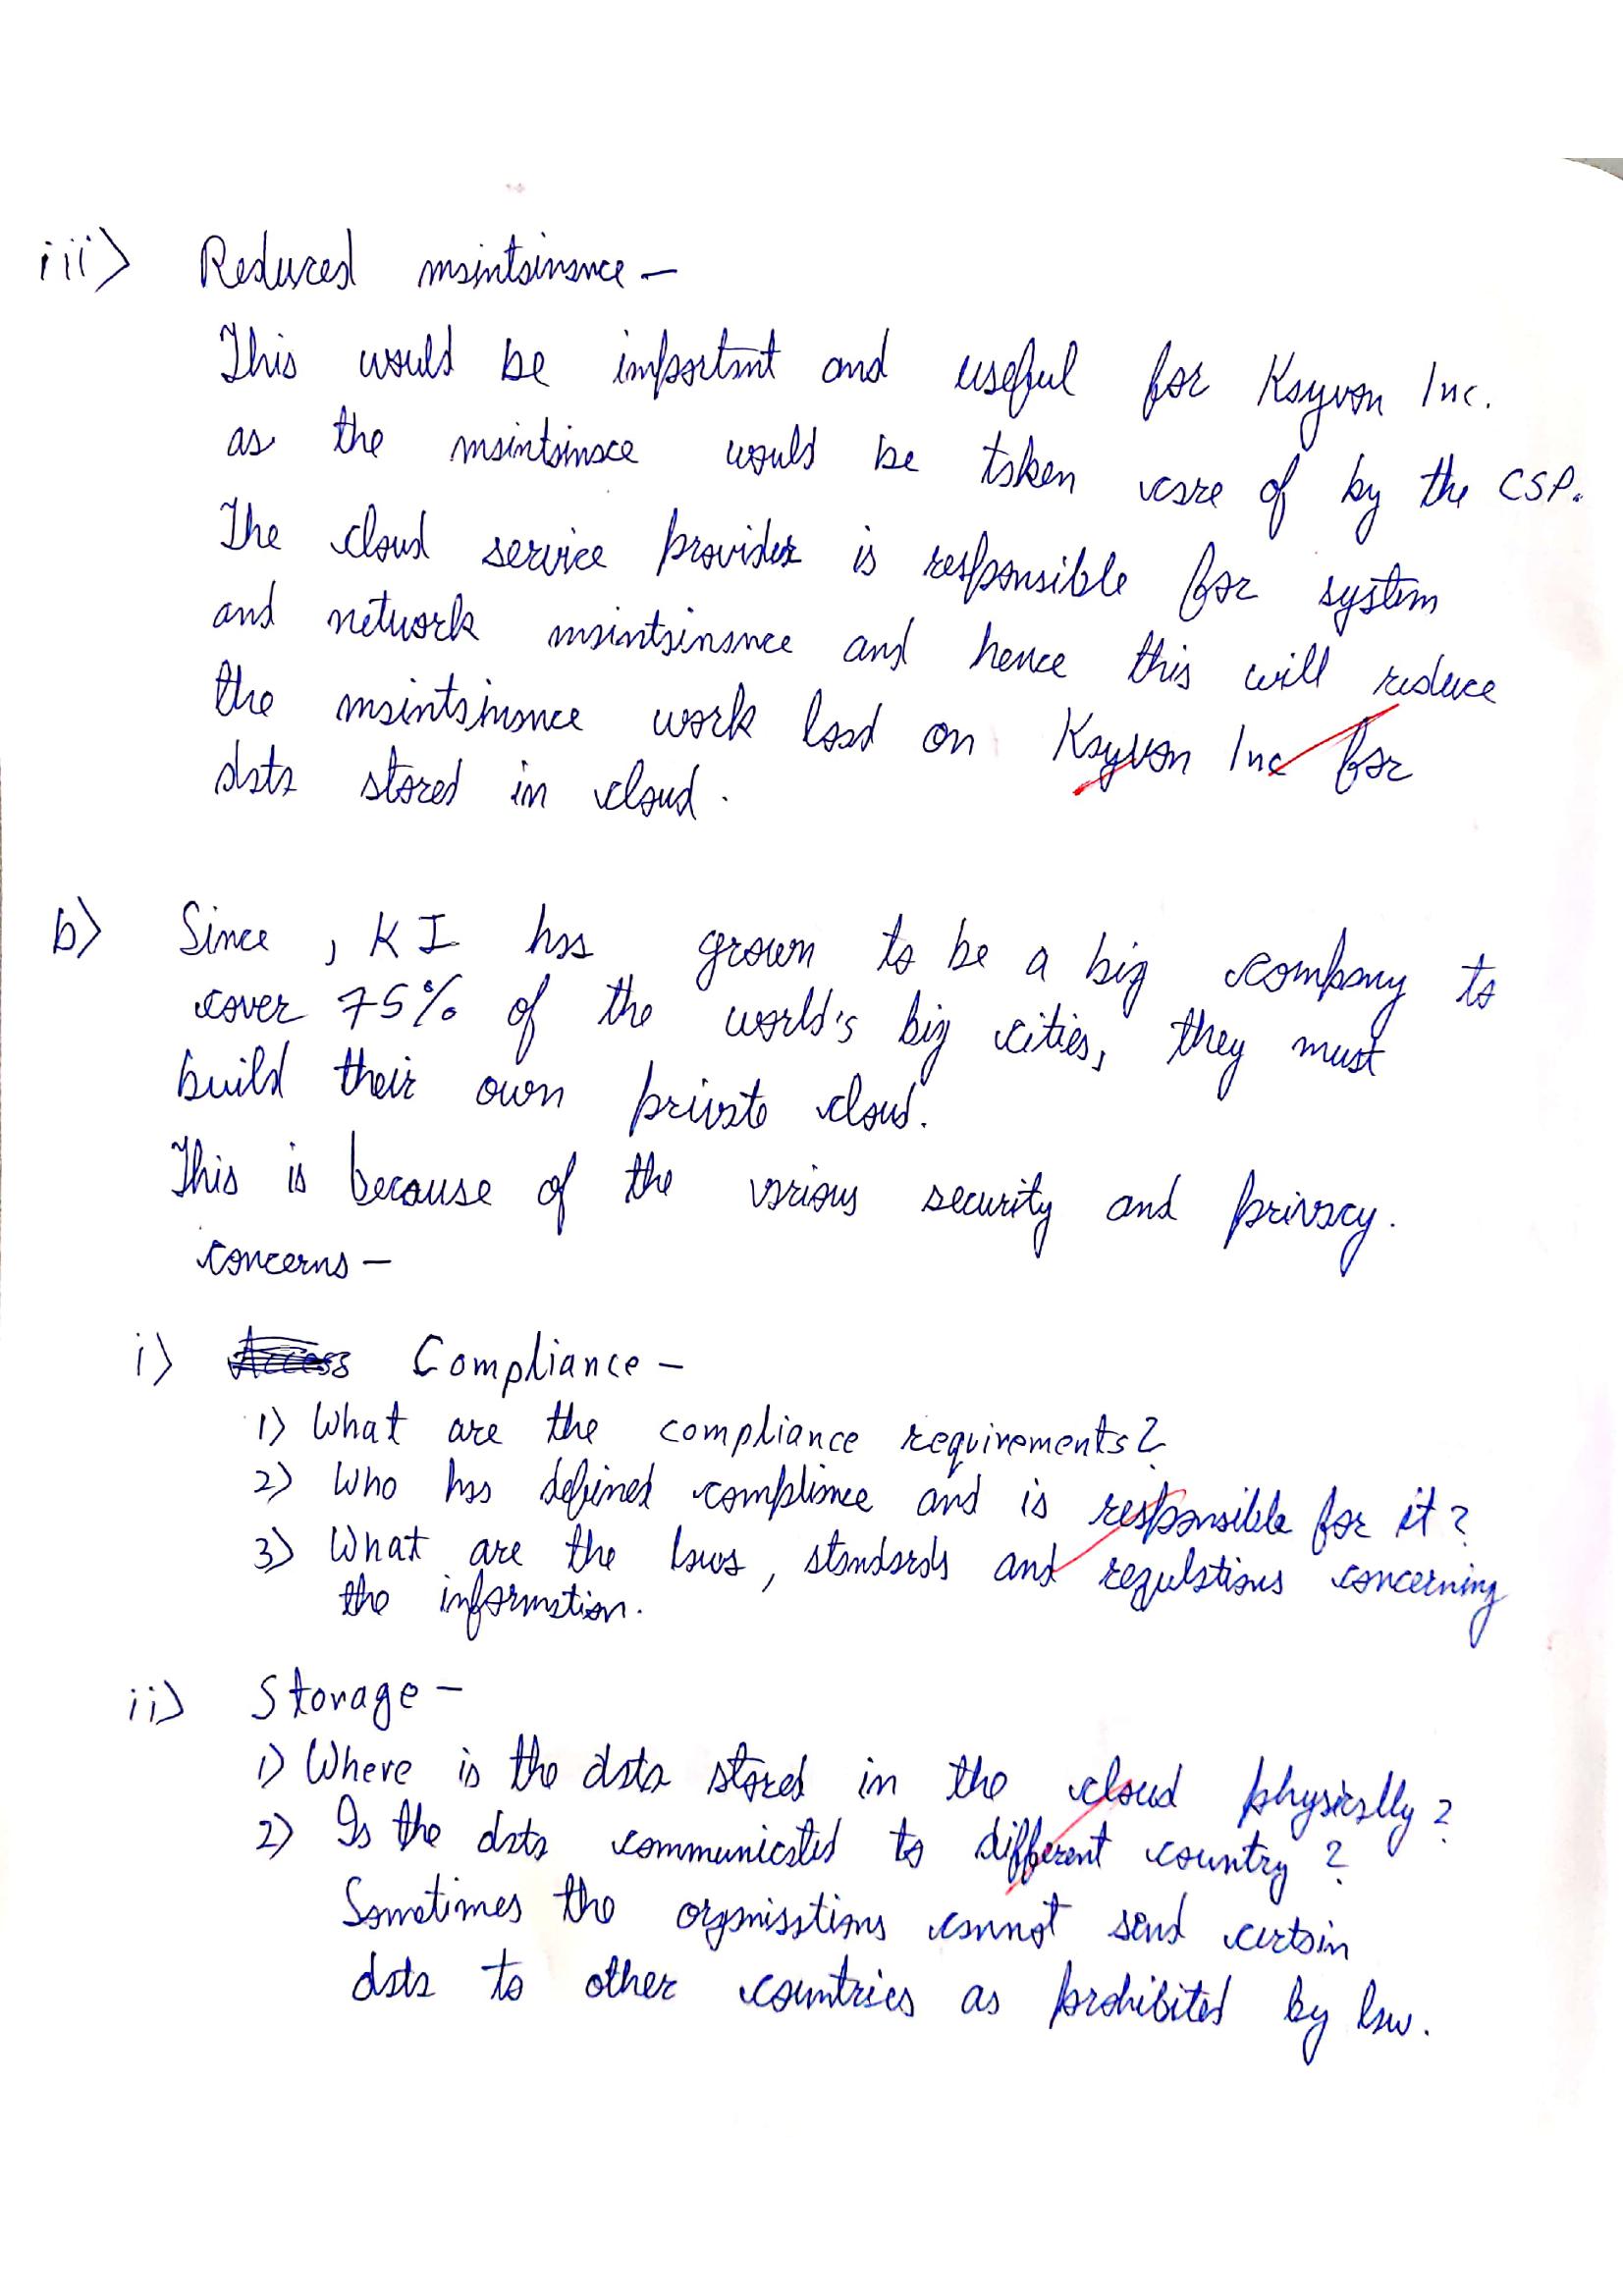 iii) Reduced maintainance -
This would be important and useful for Kayvon Inc.
as the maintainace would be taken care of by the CSP.
The cloud service provider is responsible for system
and network maintainance and hence this will reduce
the maintainance work load on Kayvon Inc for
data stored in cloud.
b) Since, KI has grown to be a big company to
cover 75% of the world's big cities, they must
build their own private cloud.
This is because of the various security and privacy.
concerns -
i) Access Compliance -
1) What are the compliance requirements?
2) Who has defined complience and is responsible for it?
3) What are the laws, standards and regulations concerning
the information.
ii) Storage -
1) Where is the data stored in the cloud physically?
2) Is the data communicated to different country?
Sometimes the organisations cannot send certain
data to other countries as prohibited by law.